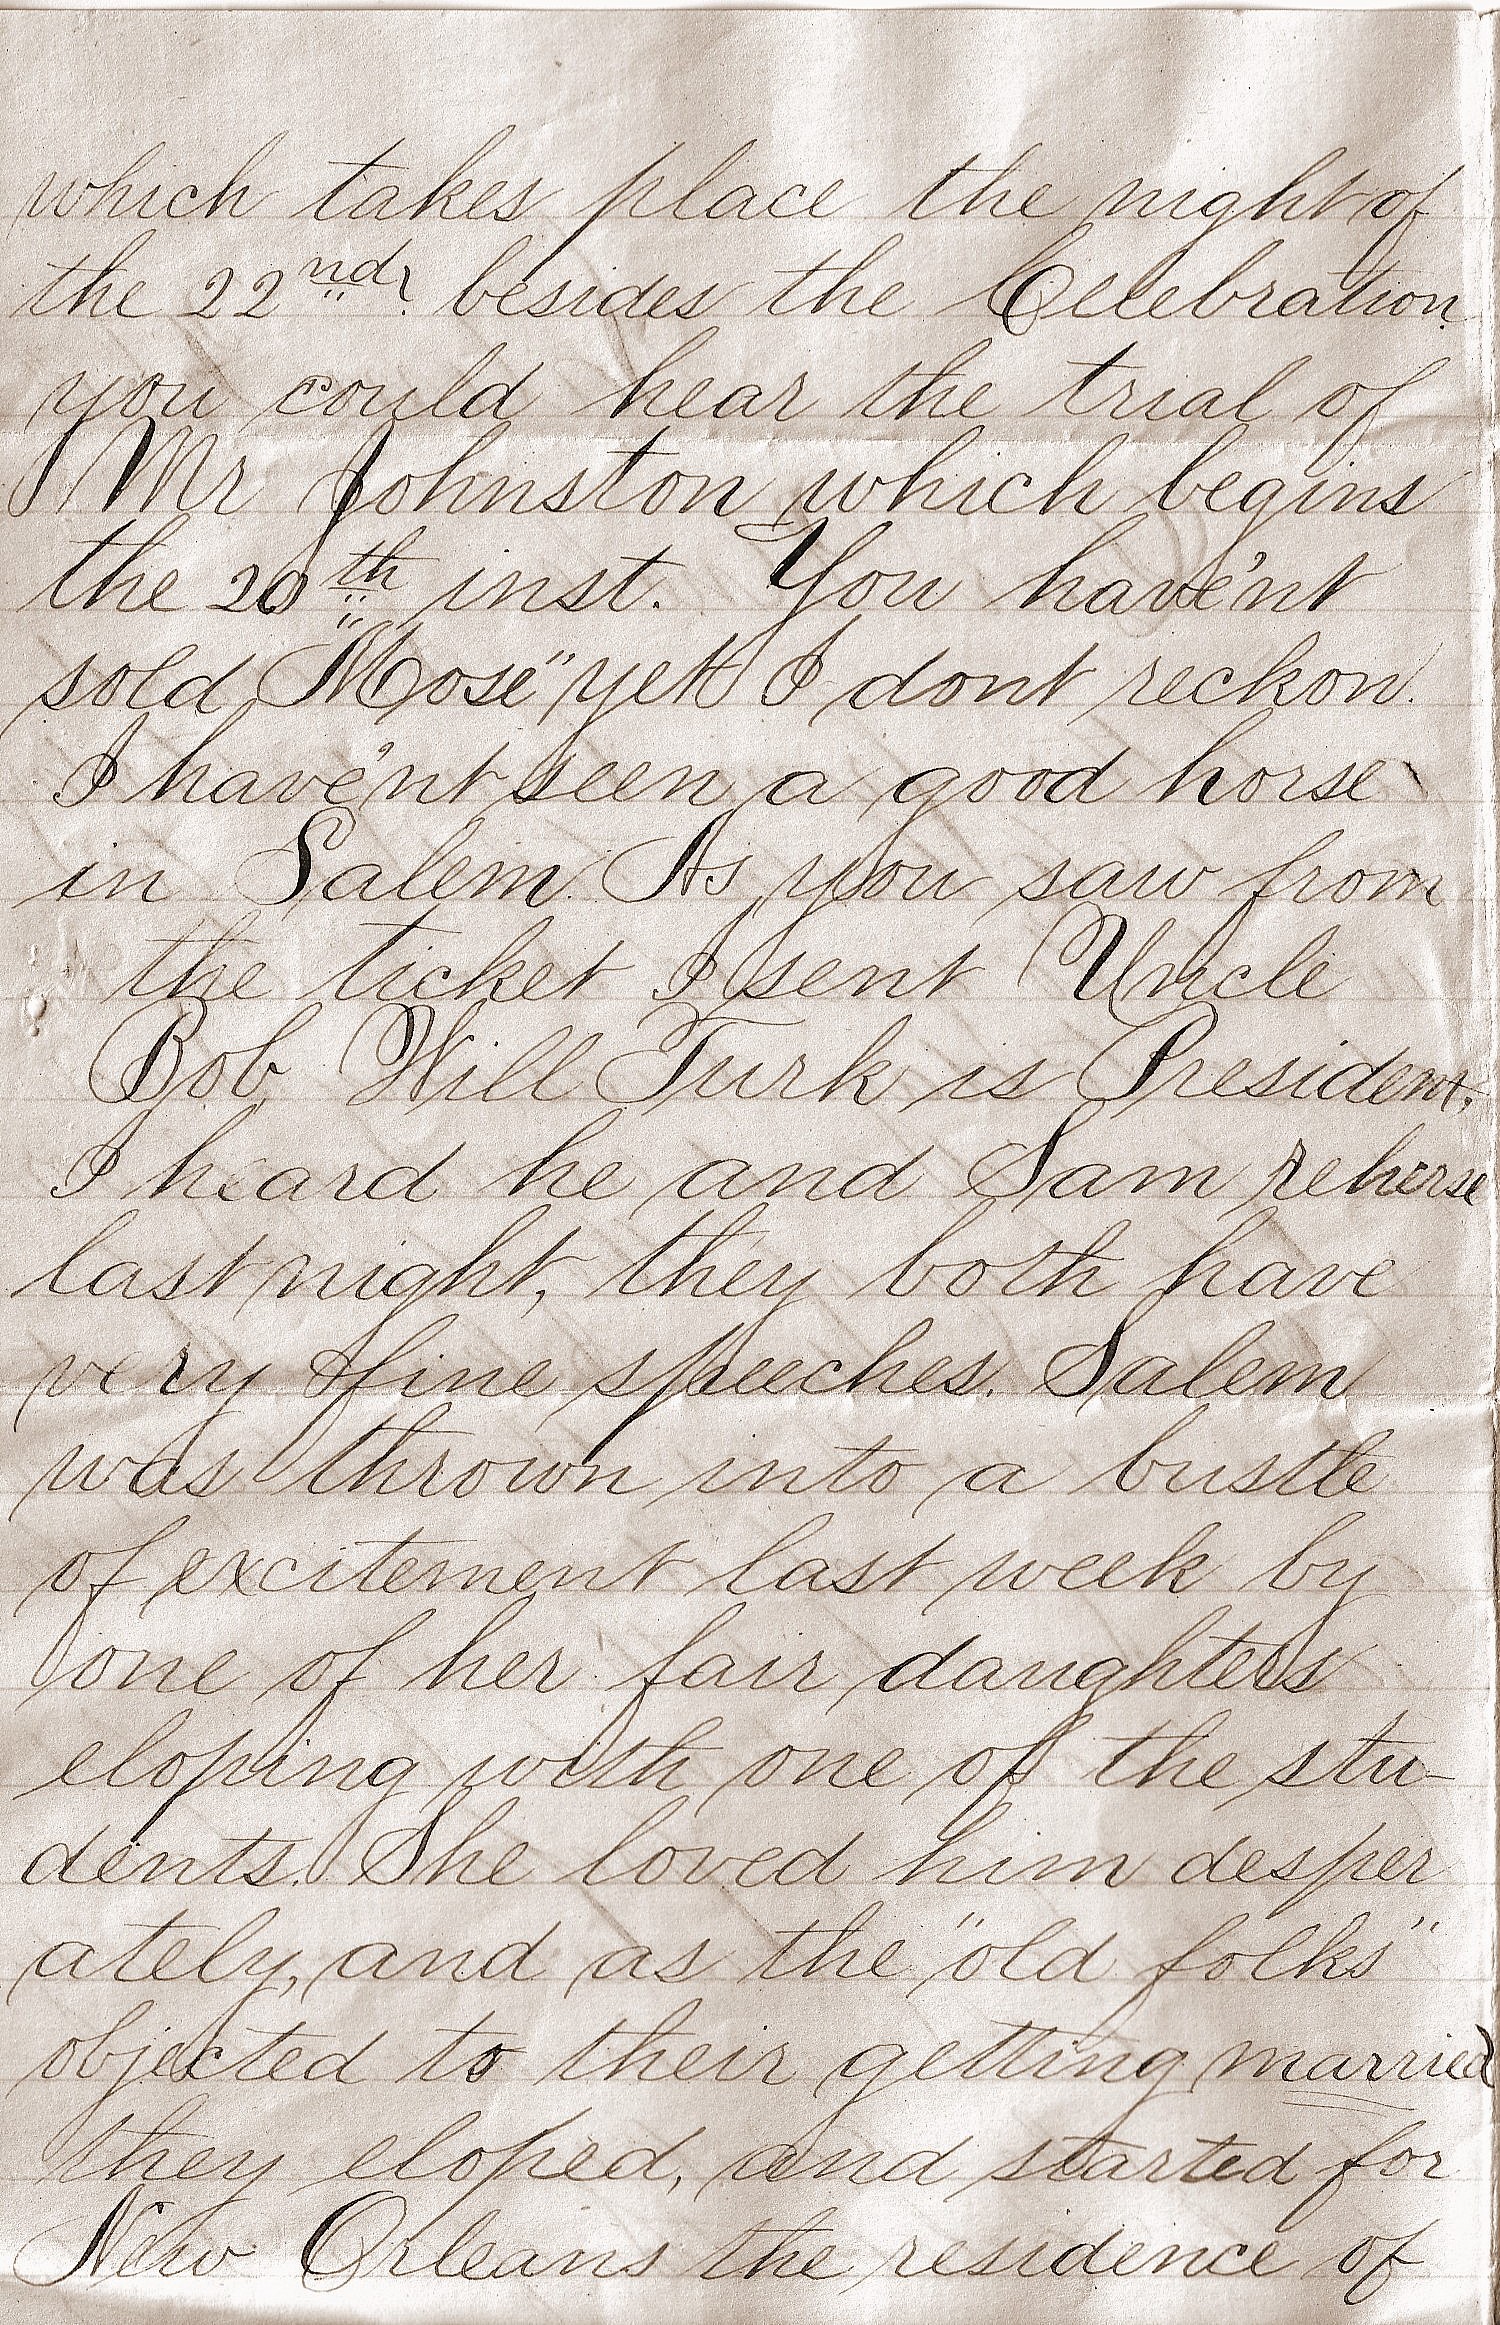 which takes place the night of
the 22nd. besides the Celebration
you could hear the trial of
Mr Johnston which begins
the 20th inst. You have'nt
sold "Mose" yet I dont reckon.
I have'nt seen a good horse
in Salem. As you saw from
the ticket I sent Uncle
Bob Will Turk is President.
I heard he and Sam reherse
last night, they both have
very fine speeches. Salem
was thrown into a bustle
of excitement last week by
one of her fair daughters
eloping with one of the stu-
dents. She loved him desper
ately, and as the "old folks"
objected to their getting married
they eloped, and started for
New Orleans the residence of